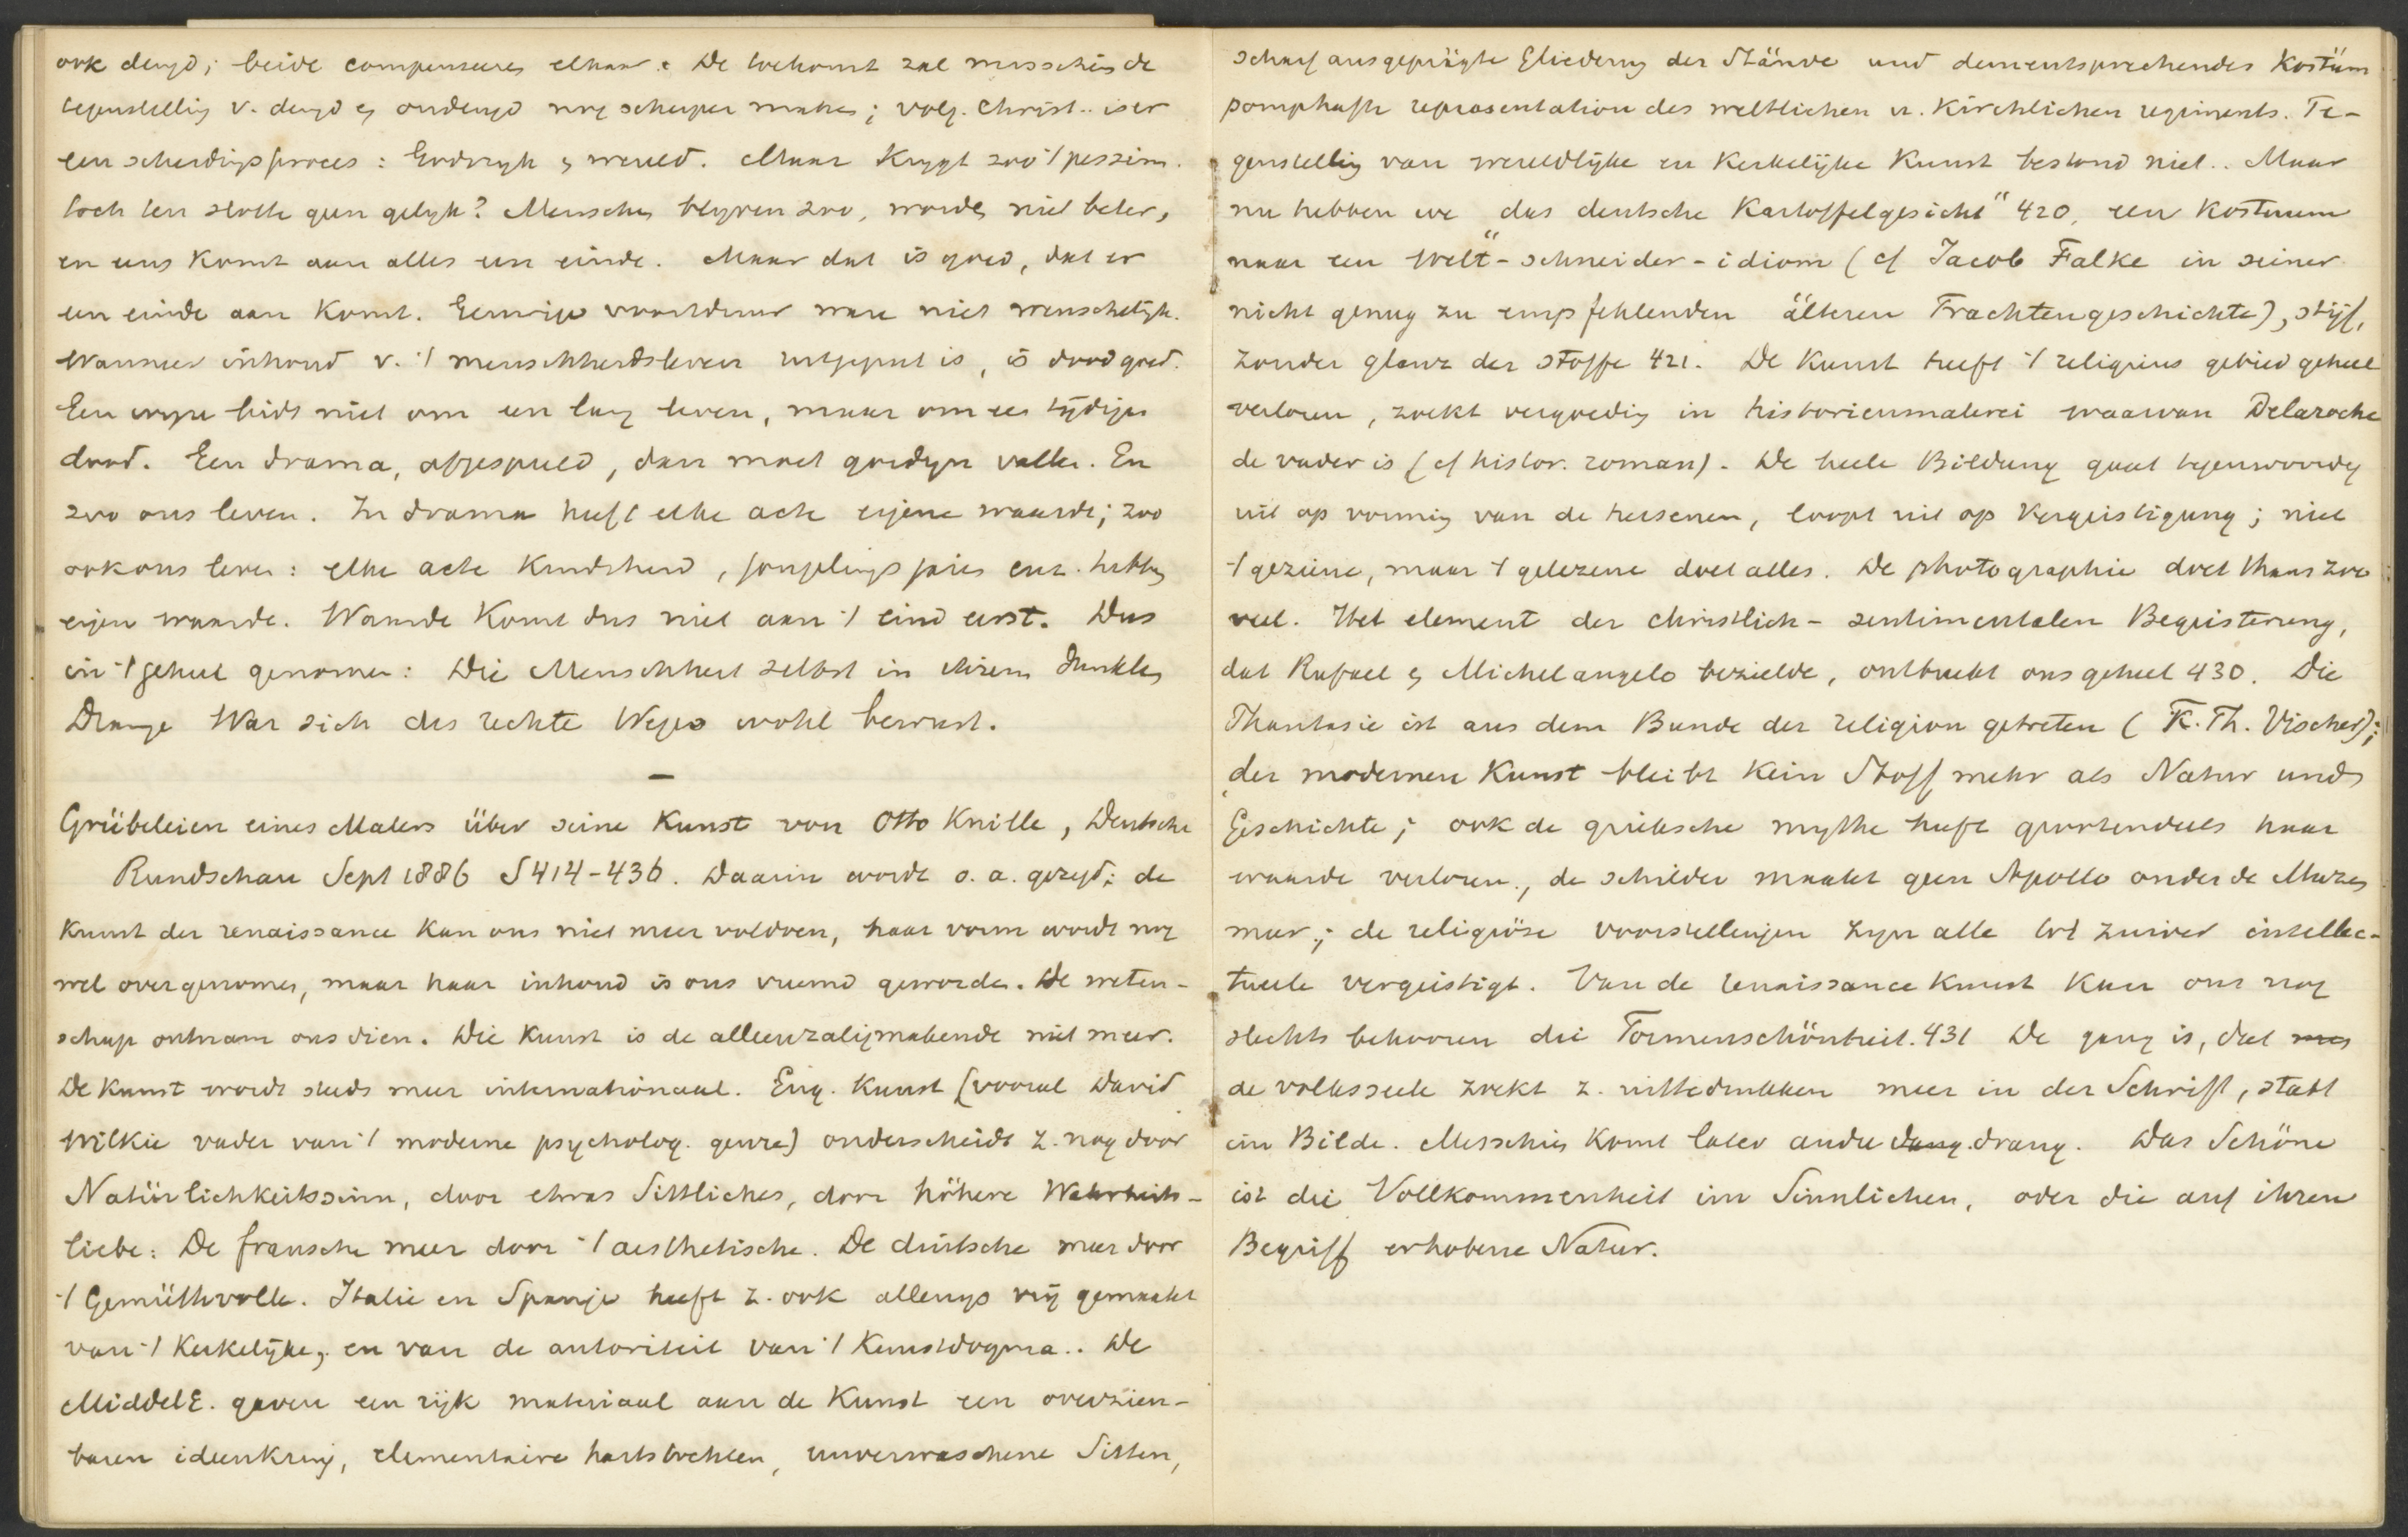 ook deugd; beide compenseeren elkaar. De toekomst zal misschien de
tegenstelling v. deugd en ondeugd nog scherper maken; volg. Christ.. is er
een scheidingsproces: Godsryk en wereld. Maar krygt zoo 't pessim.
toch ten slotte geen gelyk? Menschen blyven zoo, worden niet beter,
en eens komt aan alles een einde. Maar dat is goed, dat er
een einde aan komt. Eeuwige voortduur ware niet wenschelyk.
Wanneer inhoud v. 't menschheidsleven uitgeput is, is dood goed.
Een wyze bidt niet om een lang leven, maar om een tydigen
dood. Een drama, afgespeeld, dan moet gordyn vallen. En
zoo ons leven. In drama heeft elke acte eigene waarde; zoo
ook ons leven: elke acte kindsheid, jongelingsjaren enz. hebben
eigen waarde. Waarde komt dus niet aan 't eind eerst. Dus
in 't geheel genomen: Die Menschheit selbst in ihrem dunklen
Drange War sich des rechte Weges wohl bewust.
—
Grübeleien eines Malers über seine Kunst von Otto Knille, Deutsche
Rundschau Sept 1886 S 414-436. Daarin wordt o. a. gezegd: de
kunst der renaissance kan ons niet meer voldoen, haar vorm wordt nog
wel overgenomen, maar haar inhoud is ons vreemd geworden. De weten-
schap ontnam ons dien. Die Kunst is de alleenzaligmakende niet meer.
De kunst wordt steeds meer internationaal. Eng. Kunst (vooral David
Wilkie vader van 't moderne psycholog. genre) onderscheidt z. nog door
Natürlichkeitssinn, door etwas Sittliches, door höhere Wahrheits-
liebe: De fransche meer door 't aesthetische. De duitsche meer door
't Gemüthvolle. Italie en Spanje heeft z. ook allengs vrij gemaakt
van 't Kerkelijke, en van de autoriteit van 't Kunstdogma.. De
MiddelE. gaven een rijk materiaal aan de Kunst een overzien-
baren ideenkring, elementaire hartstochten, unverwaschene Sitten,
scharf ausgeprägte Gliederung der Stände und dementsprechendes Kostüm
pomphafte representation des weltlichen u. Kirchlichen regiments. Te-
genstelling van wereldlijke en Kerkelijke Kunst bestond niet.. Maar
nu hebben we "das deutsche Kartoffelgesicht" 420, een Kostuum
naar een "Welt-schneider-idiom (cf Jacob Falke in seiner
nicht genug zu empfehlenden älteren Trachtengeschichte), stijf,
zonder glans der stoffe 421. De Kunst heeft 't religieus gebied geheel
verloren, zoekt vergoeding in historienmalerei waarvan Delaroche
de vader is (cf histor. roman). De heele Bildung gaat tegenwoordig
uit op vorming van de hersenen, loopt uit op Vergeistigung; niet
't geziene, maar 't gelezene doet alles. De photographie doet thans zoo
veel. Het element der christlich-sentimentalen Begeisterung,
dat Rafael en Michelangelo bezielde, ontbreekt ons geheel 430. Die
Phantasie ist aus dem Bunde der religion getreten (F. Th. Vischer);
der modernen Kunst bleibt kein Stoff mehr als Natur und
Geschichte; ook de grieksche mythe heeft grootendeels haar
waarde verloren., de schilder maakt geen Apollo onder de Muzen
meer; de religiöse voorstellingen zyn alle tot zuiver intellec-
tueele vergeistigt. Van de renaissance kunst kan ons nog
slechts bekooren die Formenschönheit. 431 De gang is, dat men
de volksseele zoekt z. uittedrukken meer in der Schrift, statt
im Bilde. Misschien komt later andere dang. drang. Das Schöne
ist die Vollkommenheit im Sinnlichen, oder die auf ihren
Begriff erhobene Natur.